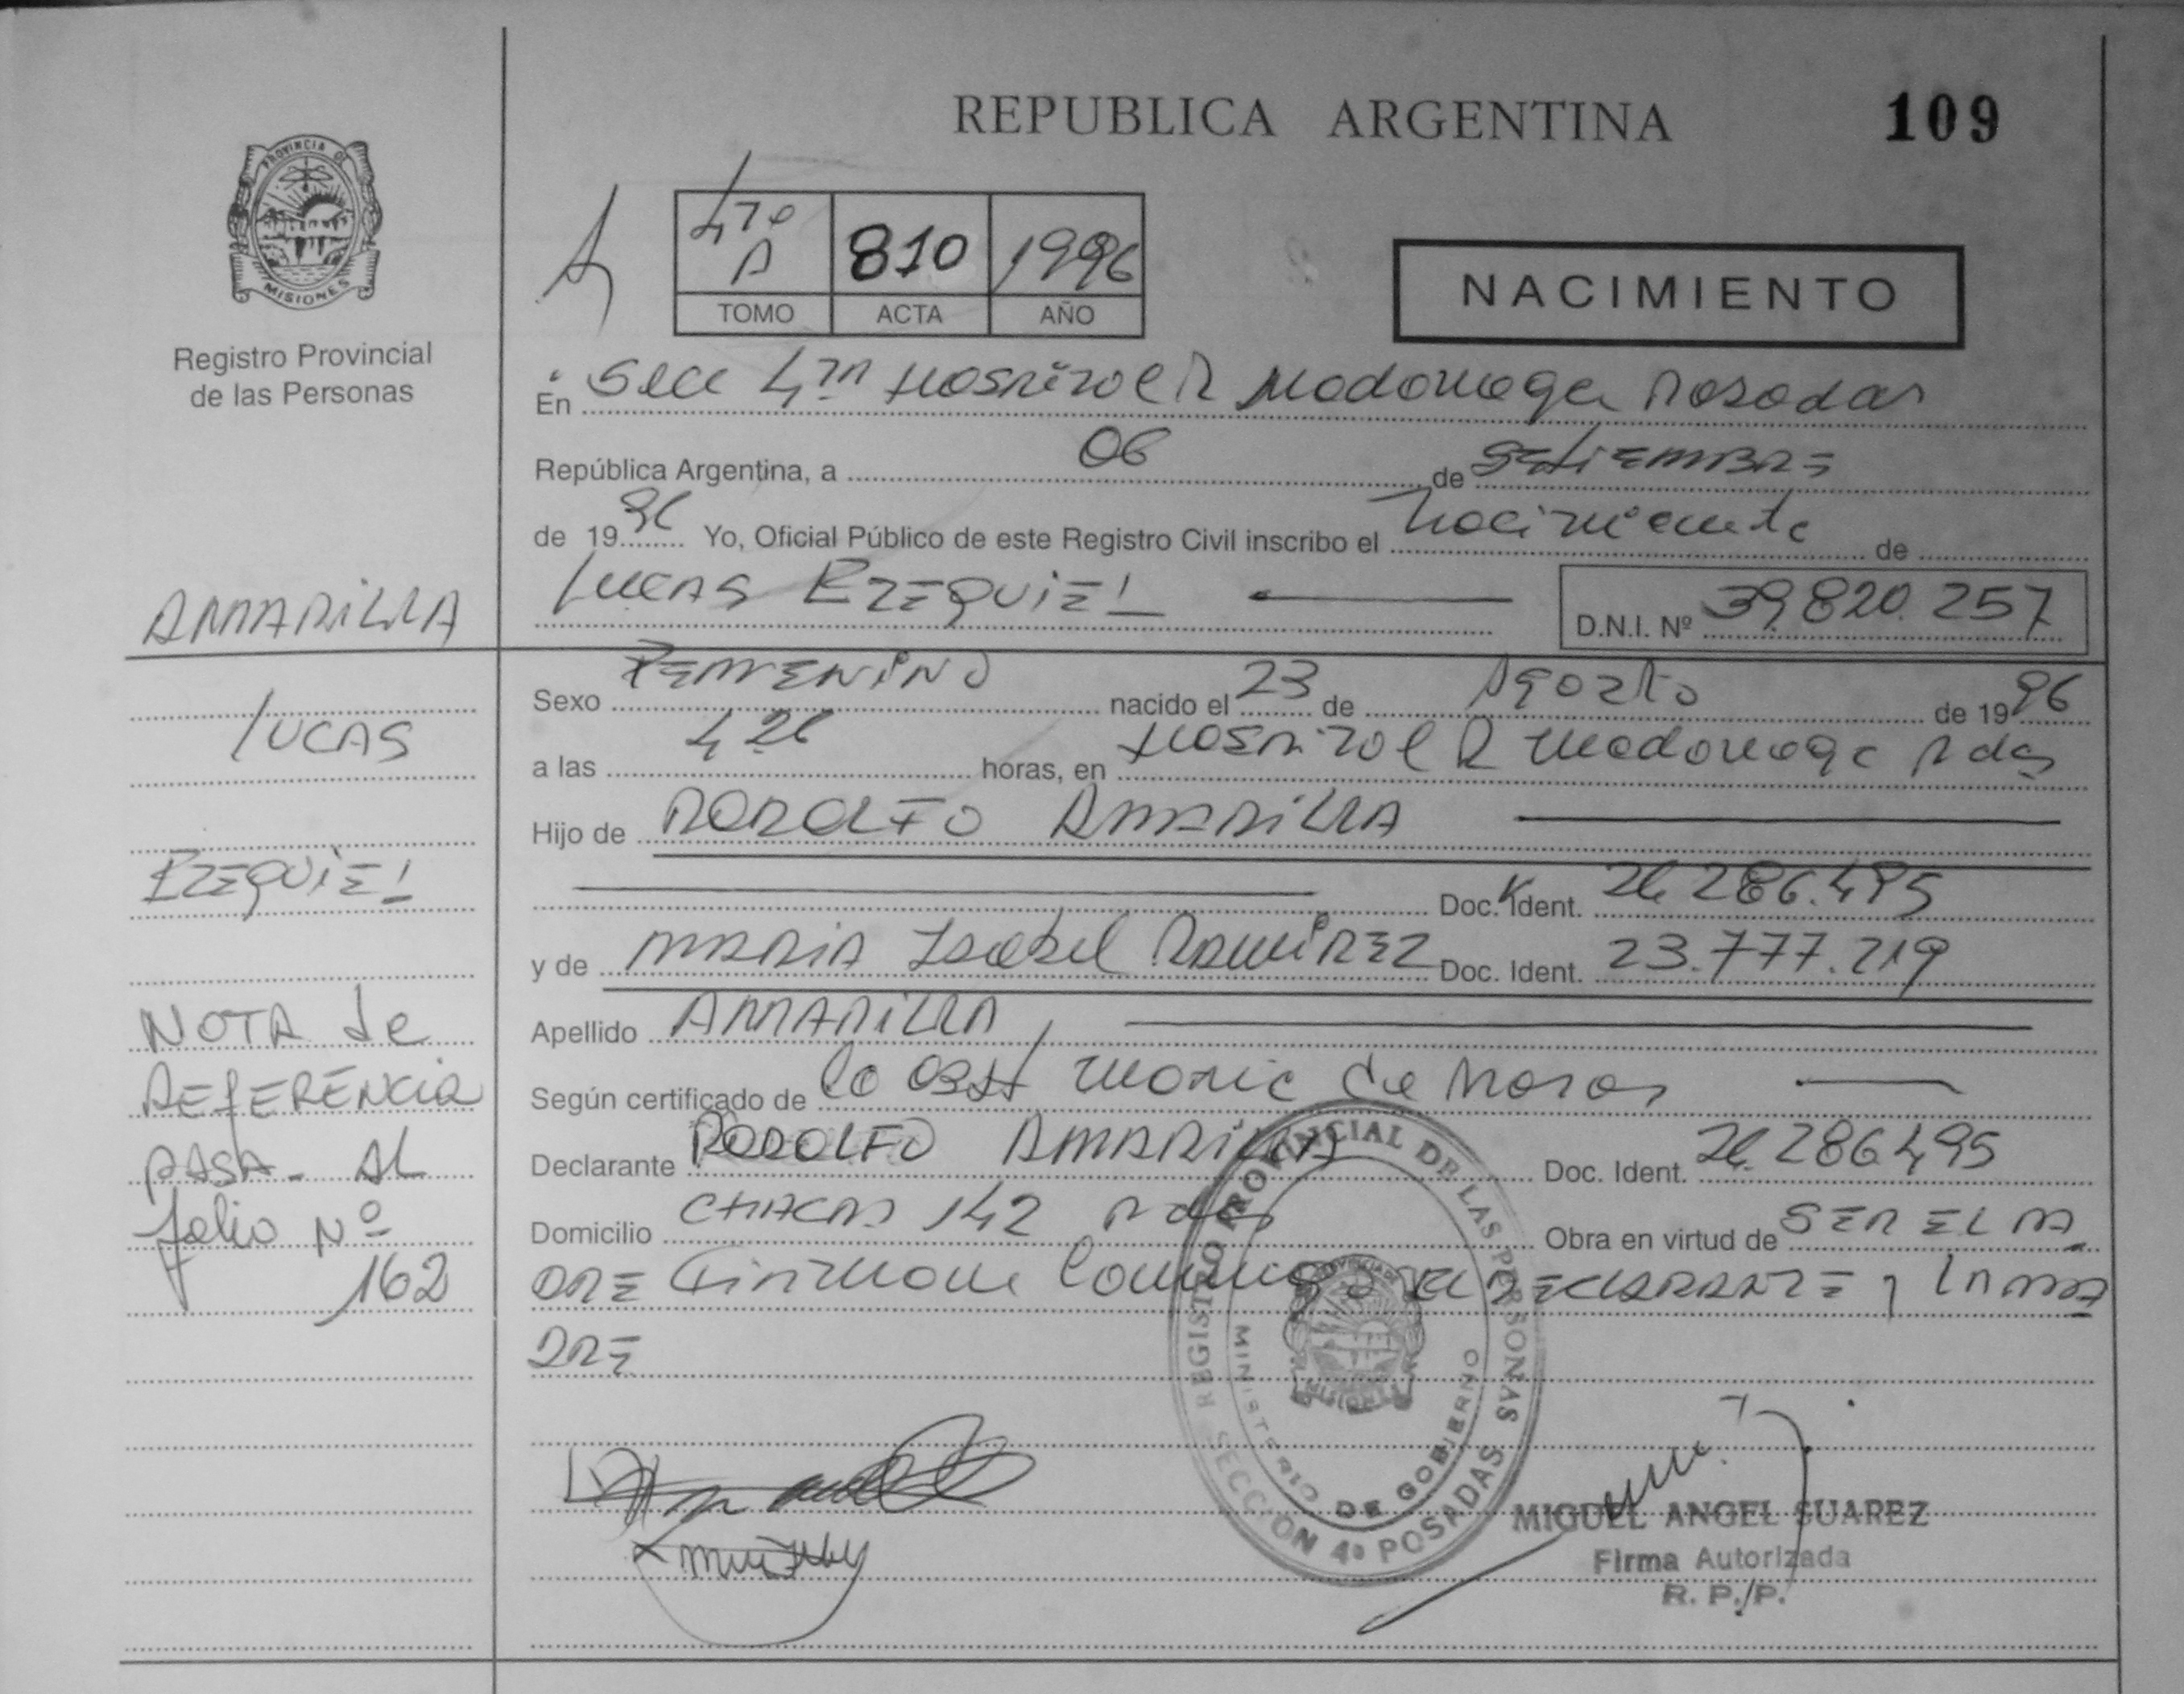 REPUBLICA ARGENTINA 109
PROVINCIA DE
MISIONES
Registro Provincial
de las Personas
A
4to A 810 1996
TOMO ACTA AÑO
NACIMIENTO
En Secc 4ta Hospital R Madariaga Posadas
República Argentina, a 06 de SEtiEMBRE
de 1996 Yo, Oficial Público de este Registro Civil inscribo el Nacimiento de
LUCAS EZEQUIEL D.N.I. Nº 39.820.257
AMARILLA
LUCAS
EZEQUIEL
NOTA de
REFERENCIA
PASA - AL
folio Nº
162
Sexo FEMENINO nacido el 23 de Agosto de 1996
a las horas, en Hospital R Madariaga Pdas
Hijo de RODOLFO AMARILLA
Doc. Ident. 26.286.495
y de MARIA Isabel RAMIREZ Doc. Ident. 23.777.219
Apellido AMARILLA
Según certificado de la Obst
Declarante RODOLFO AMARILLA Doc. Ident. 26.286.495
Domicilio CHACRA 142 Pdas Obra en virtud de SER EL PA
DRE Firman Conmigo EL DECLARANTE y LA MA
DRE
REGISTRO PROVINCIAL DE LAS PERSONAS
MINISTERIO DE GOBIERNO
SECCION 4ª POSADAS
MISIONES
MIGUEL ANGEL SUAREZ
Firma Autorizada
R. P./P.